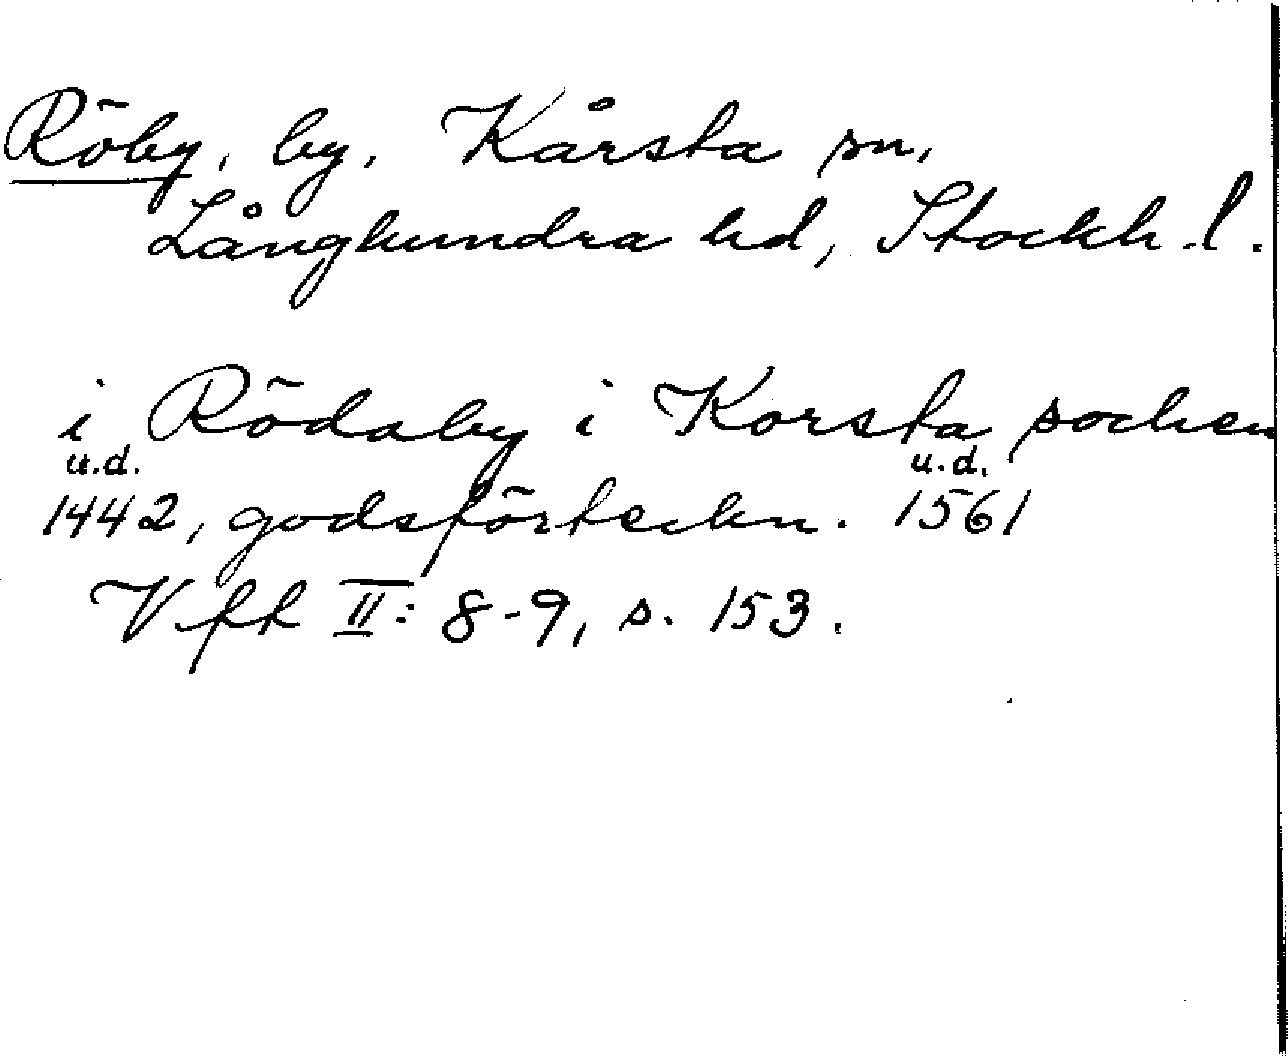 Röby, by, Kårsta sn,
Långhundra hd, Stockh. l.
i Rödaby i Korsta sochen
u.d. u.d.
1442, godsförteckn. 1561
Vfk II: 8-9, s. 153.